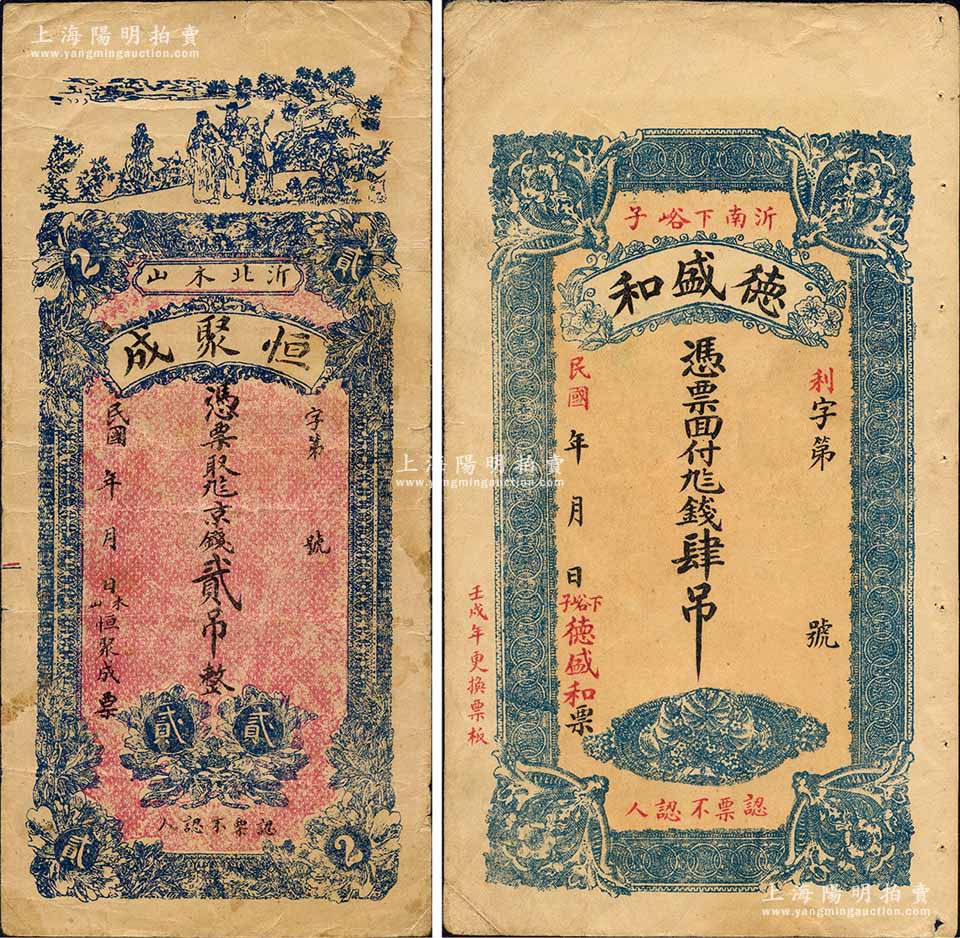 上海陽明拍賣
www.yangmingauction.com
2
貳
沂北木山
恒聚成
字第 號
憑票取尨京錢貳吊整
民國 年 月 日木山恒聚成票
貳
貳
認票不認人
貳
2
沂南下峪子
德盛和
利字第 號
憑票面付尨錢肆吊
民國 年 月 日下峪子德盛和票
壬戌年更換票板
認票不認人
上海陽明拍賣
www.yangmingauction.com
上海陽明拍賣
www.yangmingauction.com